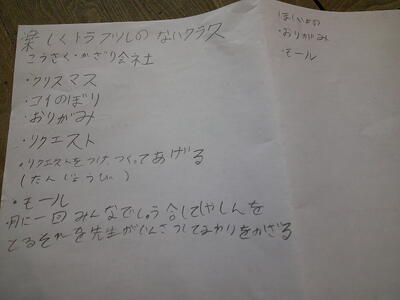 楽しくトラブルしのないクラス
こうさく・かざり会社
・クリスマス
・コイのぼり
・おりがみ
・リクエスト
・リクエストをつけつくってあげる
(たんじょうび)
・モール
・月に一回みんなでしゅう合してしゃしんを
とるそれを先生がいんさつしてまわりをかざる
・おりがみ
・モール